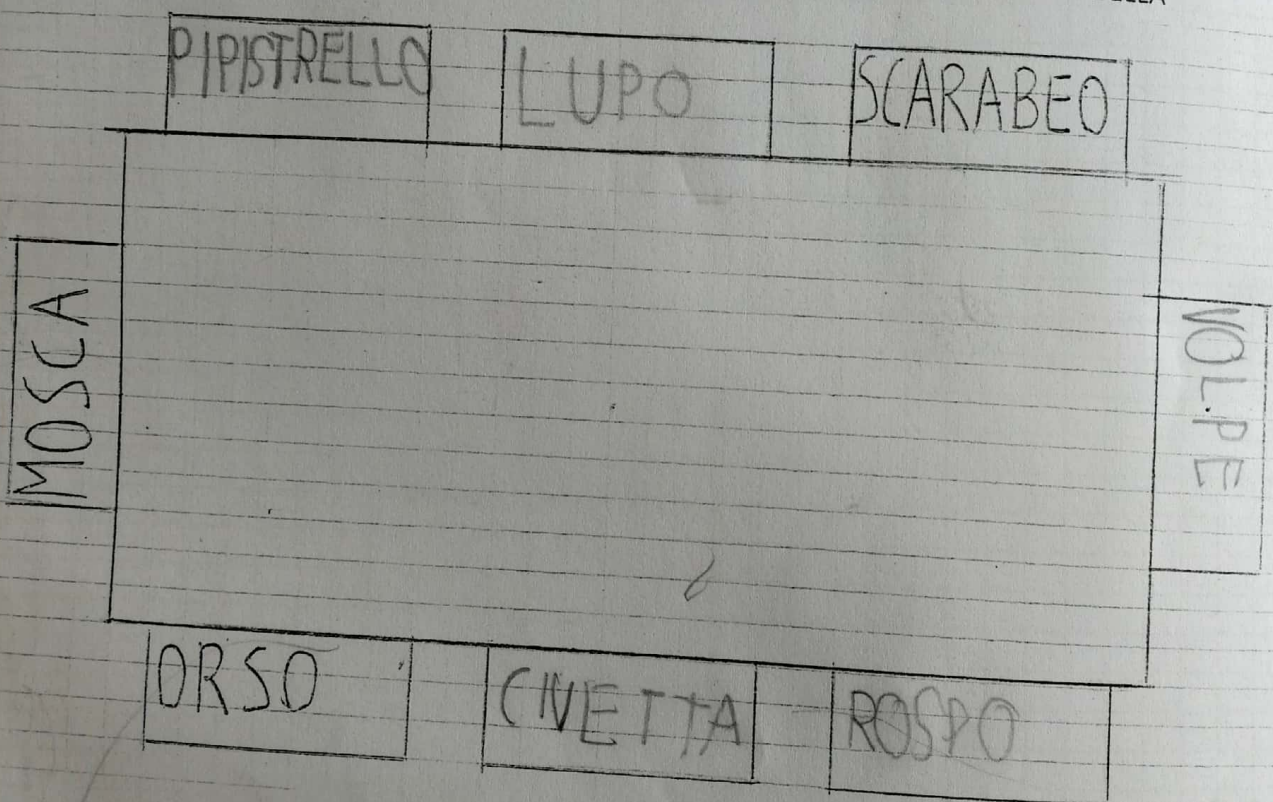 PIPISTRELLO
LUPO
SCARABEO
MOSCA
VOLPE
ORSO
CIVETTA
ROSPO